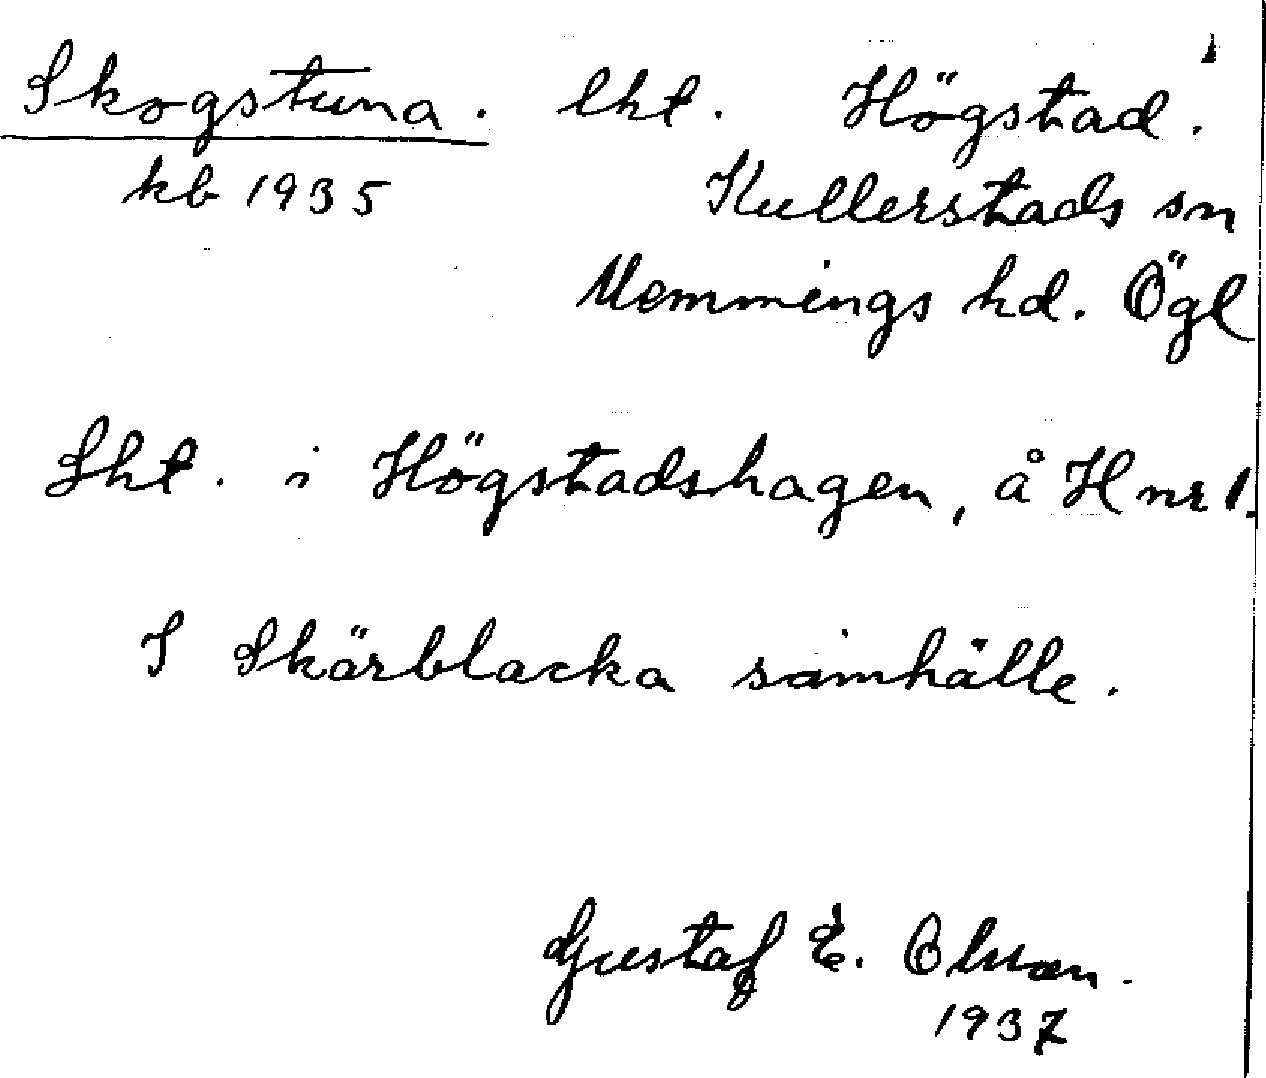 Skogstuna. lht. Högstad.
kb 1935 Kullerstads sn
Memmings hd. Ögl
Lht. i Högstadshagen, å H nr 1.
I Skärblacka samhälle.
Gustaf E. Olsson.
1937